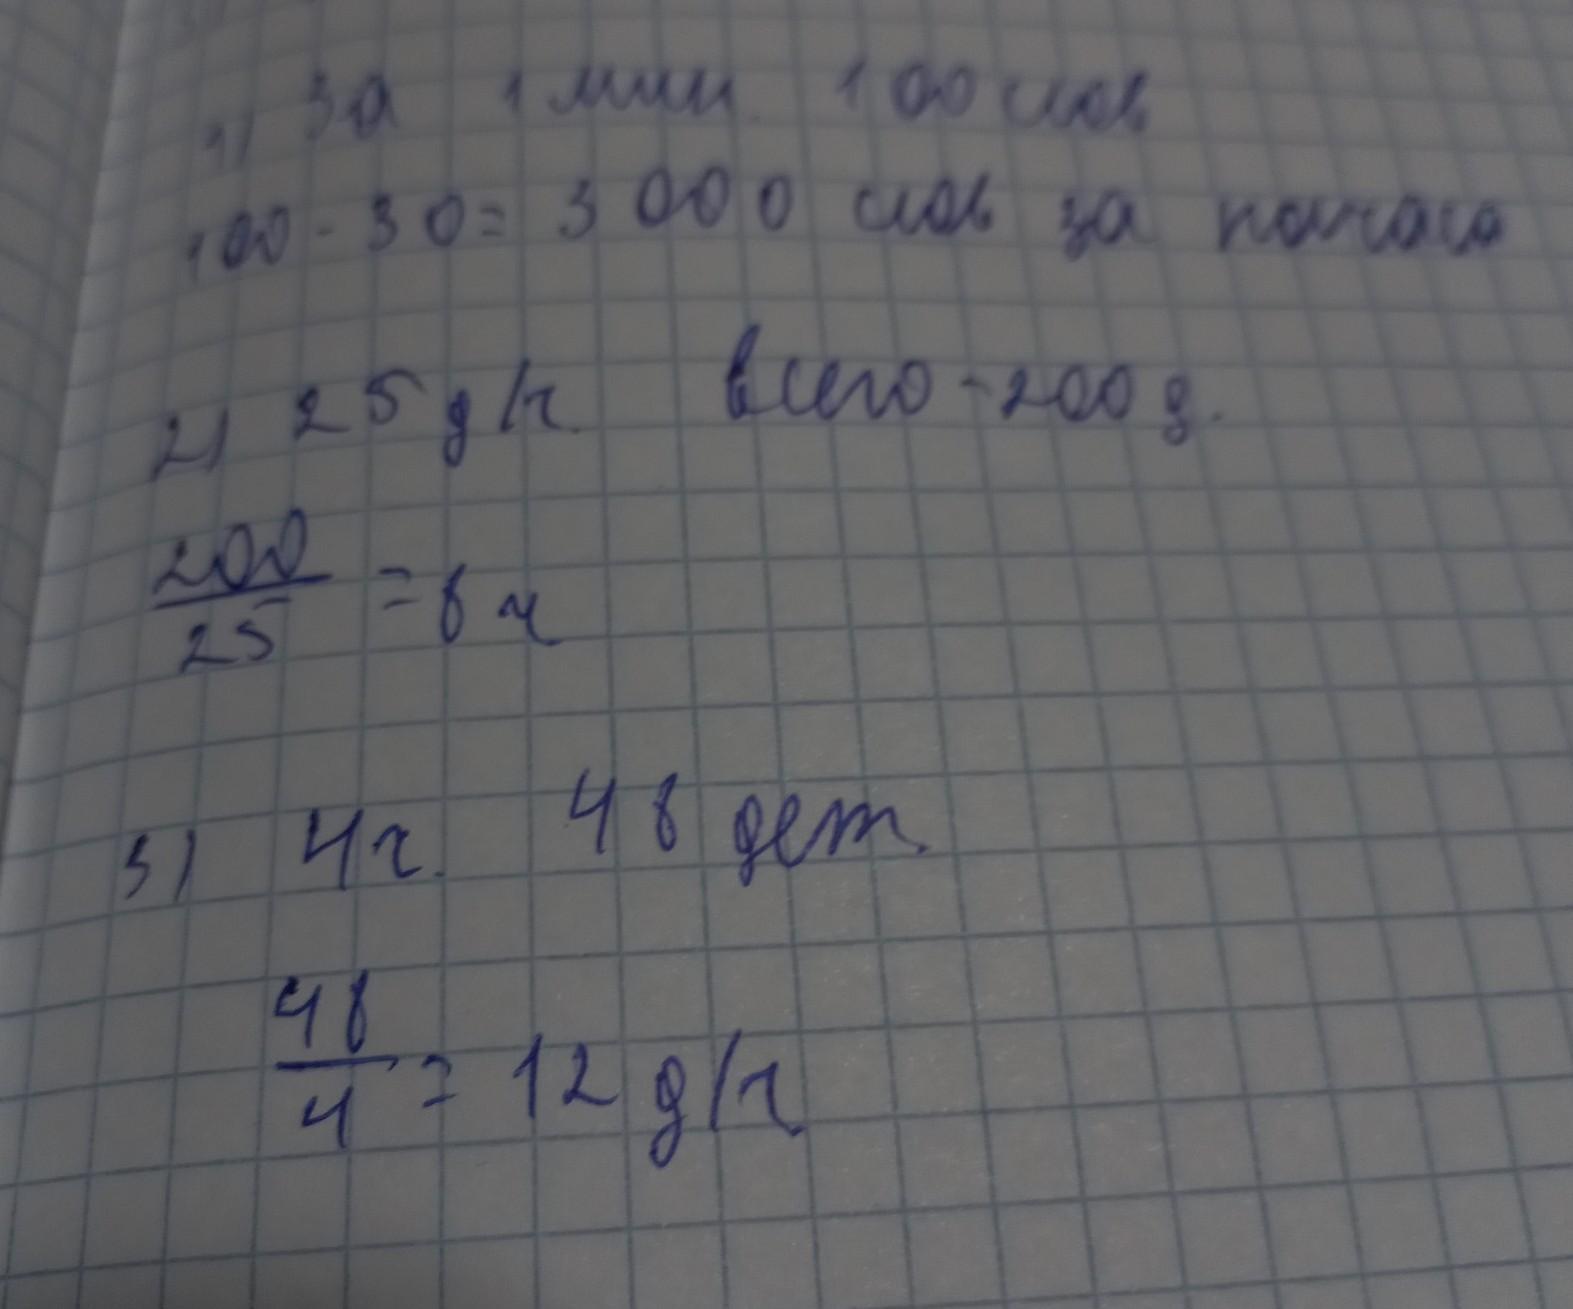 1) За 1 мин. 100 слов
100 · 30 = 3000 слов за полчаса
2) 25 д/ч. всего - 200 д.
200/25 = 8 ч
3) 4ч. 48 дет.
48/4 = 12 д/ч